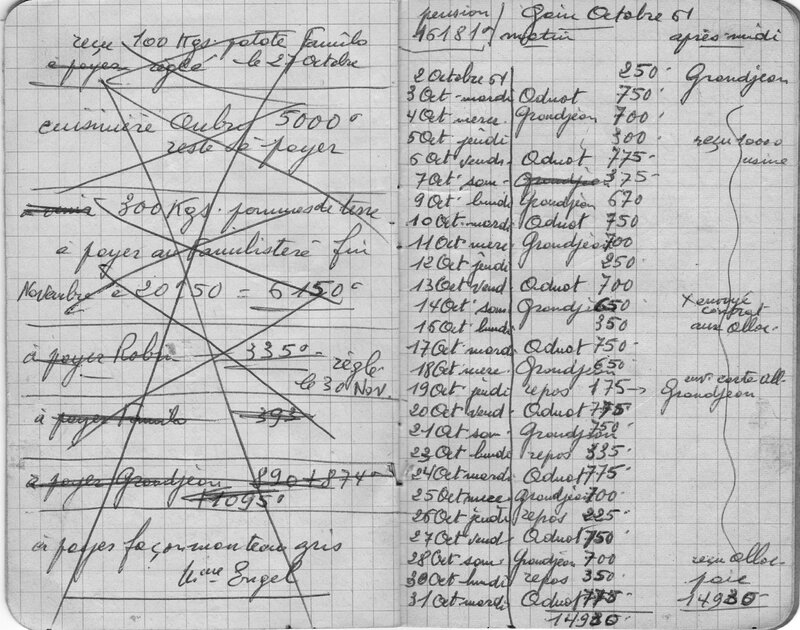 reçu 100 Kgs. patate familo
à payer réglé le 27 Octobre
cuisinière Aubry 5000°
reste à payer
300 Kgs. pommes de terre
à payer au familistère fin
Novembre à 20°50 = 6150°
à payer Robin - 335°-
réglé
le 30 Nov.
à payer familo 393
à payer Grandjean 890 + 874°
1095°
à payer façon manteau gris
Mme Engel
pension / Gain Octobre 61
46181° / matin après-midi
2 Octobre 61 250 Grandjean
3 Oct. mardi Adnot 750
4 Oct merc. Grandjean 700
5 Oct jeudi 300 reçu 10000
6 Oct vend. Adnot 775 usine
7 Oct sam. Grandjean 375
9 Oct lundi Grandjean 670
10 Oct. mardi Adnot 750
11 Oct merc Grandjean 700
12 Oct jeudi 250
13 Oct vend Adnot 700
14 Oct sam Grandjean 650 x envoyé
16 Oct lundi 350 contrat
17 Oct mard. Adnot 750 aux alloc.
18 Oct merc. Grandjean 650
19 Oct jeudi repos 175 env. carte all.
20 Oct vend. Adnot 775 Grandjean
21 Oct sam. Grandjean 750
23 Oct lundi repos 335
24 Oct mardi Adnot 775
25 Oct merc. Grandjean 700
26 Oct jeudi repos 225
27 Oct vend. Adnot 750
28 Oct sam. Grandjean 700 reçu alloc.
30 Oct lundi repos 350 paie
31 Oct mardi Adnot 775 14930
14930